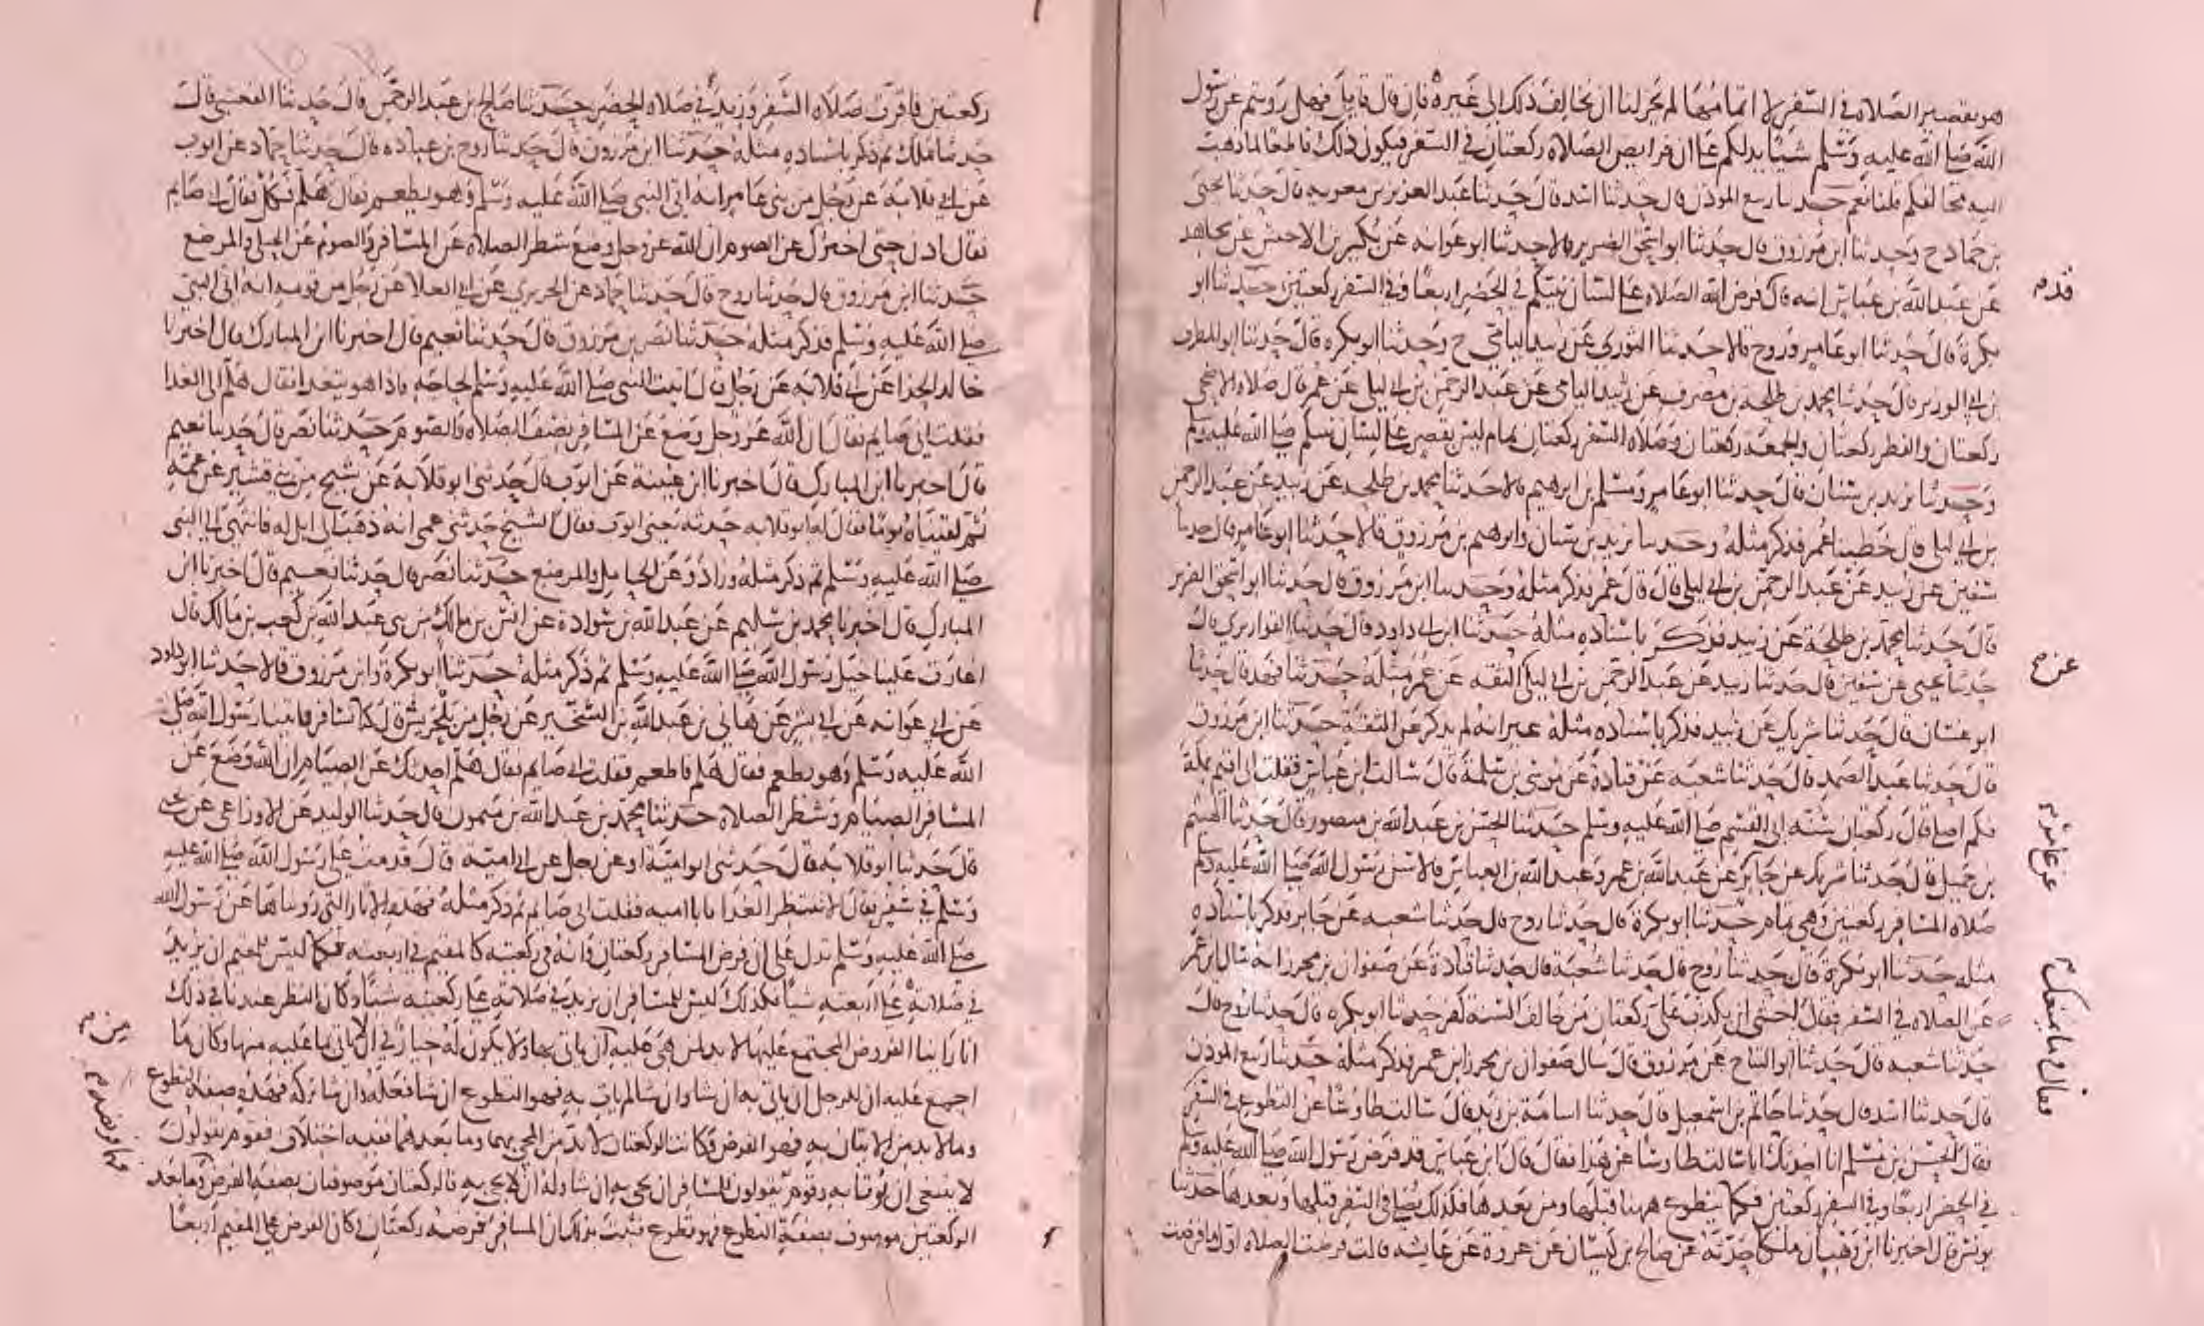 هو بقصير الصلاه في السفر لا اتمامها لم يجز لنا ان نخالف ذلك الى غيره فان قال قايل فهل رويتم عن رسول
الله صلى الله عليه وسلم شيا يدلكم على ان فرايض الصلاه ركعتان في السفر فيكون ذلك قاطعا لما ذهبت
اليه مخالفكم قلنا نعم حدثنا ربيع الموذن قال حدثنا اسد قال حدثنا عبد العزيز بن معويه قال حدثنا يحيى
بن حماد ح وحدثنا ابن مرزوق قال حدثنا ابو اسحق الضرير قالا حدثنا ابو عوانه عن بكير بن الاخنس عن مجاهد
عن عبد الله بن عباس انه قال فرض الله الصلاه على لسان نبيكم في الحضر اربعا وفي السفر ركعتين حدثنا ابو
بكرة قال حدثنا ابو عامر وروح قالا حدثنا الثوري عن زبيد اليامي ح وحدثنا ابو بكره قال حدثنا ابو المطرف
بن ابي الوزير قال حدثنا محمد بن طلحة بن مصرف عن زبيد اليامي عن عبد الرحمن بن ابي ليلى عن عمر قال صلاه الاضحى
ركعتان والفطر ركعتان والجمعه ركعتان وصلاه السفر ركعتان تمام ليس بقصر على لسان نبيكم صلى الله عليه وسلم
وحدثنا يزيد بن سنان قال حدثنا ابو عامر ومسلم بن ابرهيم قالا حدثنا محمد بن طلحه عن زبيد عن عبد الرحمن
بن ابي ليلى قال خطبنا عمر فذكر مثله وحدثنا يزيد بن سنان وابرهيم بن مرزوق قالا حدثنا ابو عامر قال حدثنا
سفين عن زبيد عن عبد الرحمن بن ابي ليلى قال قال عمر فذكر مثله وحدثنا ابن مرزوق قال حدثنا ابو اسحق الضرير
قال حدثنا محمد بن طلحة عن زبيد فذكر باسناده مثله حدثنا ابن ابي داود قال حدثنا القواريري قال
حدثنا يحيى عن سفين قال حدثنا زبيد عن عبد الرحمن بن ابي ليلى الثقه عن عمر مثله حدثنا فهد قال حدثنا
ابو غسان قال حدثنا شريك عن زبيد فذكر باسناده مثله غير انه لم يذكر عن الثقة حدثنا ابن مرزوق
قال حدثنا عبد الصمد قال حدثنا شعبه عن قتادة عن موسى بن سلمة قال سالت ابن عباس فقلت اني اقيم بمكة
فكم اصلي قال ركعتان سنه ابي القسم صلى الله عليه وسلم حدثنا الحسن بن عبد الله بن منصور قال حدثنا الهيثم
بن جميل قال حدثنا شريك عن جابر عن عبد الله بن عمر وعبد الله بن العباس قالا سن رسول الله صلى الله عليه وسلم
صلاه المسافر ركعتين وهي تمام حدثنا ابو بكرة قال حدثنا روح قال حدثنا شعبه عن جابر فذكر باسناده
مثله حدثنا ابو بكرة قال حدثنا روح قال حدثنا شعبة قال حدثنا قتادة عن صفوان بن محرز انه سال ابن عمر
عن الصلاه في السفر فقال اخشى ان يكذب علي ركعتان من خالف السنة كفر حدثنا ابو بكره قال حدثنا روح قال
حدثنا شعبه قال حدثنا ابو التياح عن مورق قال سال صفوان بن محرز ابن عمر فذكر مثله حدثنا ربيع الموذن
قال حدثنا اسد قال حدثنا حاتم بن اسمعيل قال حدثنا اسامة بن زيد قال سالت طاوسا عن التطوع في السفر
فقال الحسن بن مسلم انا احدثك انا سالت طاوسا عن هذا فقال قال ابن عباس قد فرض رسول الله صلى الله عليه وسلم
في الحضر اربعا وفي السفر ركعتين فكما يتطوع ههنا قبلها ومن بعدها فكذلك يصلى في السفر قبلها وبعدها حدثنا
يونس قال اخبرنا ابن وهب ان ملكا حدثه عن صالح بن كيسان عن عروة عن عايشه قالت فرضت الصلاه اول ما فرضت
قدم
عن
ركعتين فاقرت صلاه السفر وزيد في صلاه الحضر حدثنا صالح بن عبد الرحمن قال حدثنا القعنبي قال
حدثنا ملك ثم ذكر باسناده مثله حدثنا ابن مرزوق قال حدثنا روح بن عباده قال حدثنا حماد عن ايوب
عن ابي قلابة عن رجل من بني عامر انه اتى النبي صلى الله عليه وسلم وهو يطعم فقال هلم فكل فقال اني صايم
فقال ادن حتى اخبرك عن الصوم ان الله عز وجل وضع شطر الصلاه عن المسافر والصوم عن الحبلى والمرضع
حدثنا ابن مرزوق قال حدثنا روح قال حدثنا حماد عن الجريري عن ابي العلا عن رجل من قومه انه اتى النبي
صلى الله عليه وسلم فذكر مثله حدثنا نصر بن مرزوق قال حدثنا نعيم قال اخبرنا ابن المبارك قال اخبرنا
خالد الحذا عن ابي قلابه عن رجل قال اتيت النبي صلى الله عليه وسلم لحاجه فاذا هو يتغدا فقال هلم الى الغدا
فقلت اني صايم فقال ان الله عز وجل وضع عن المسافر نصف الصلاه والصوم حدثنا نصر قال حدثنا نعيم
قال اخبرنا ابن المبارك قال اخبرنا ابن عيينة عن ايوب قال حدثني ابو قلابة عن شيخ من بني قشير عن عمه
ثم لقيناه يوما فقال له ابو قلابه حدثه يعني ايوب فقال الشيخ حدثني عمي انه ذهب في ابل له فانتهى الى النبي
صلى الله عليه وسلم ثم ذكر مثله وزاد وعن الحامل والمرضع حدثنا نصر قال حدثنا نعيم قال اخبرنا ابن
المبارك قال اخبرنا محمد بن سليم عن عبد الله بن سوادة عن انس بن مالك من بني عبد الله بن كعب بن مالك قال
اغارت علينا خيل رسول الله صلى الله عليه وسلم ثم ذكر مثله حدثنا ابو بكرة وابن مرزوق قالا حدثنا ابو داود
عن ابي عوانه عن ابي بشر عن هاني بن عبد الله بن الشخير عن رجل من بلحريش قال كنا نسافر فاتينا رسول الله صلى
الله عليه وسلم وهو يطعم فقال هلم فاطعم فقلت اني صايم فقال هلم احدثك عن الصيام ان الله وضع عن
المسافر الصيام وشطر الصلاه حدثنا محمد بن عبد الله بن ميمون قال حدثنا الوليد عن الاوزاعي عن يحيى
قال حدثنا ابو قلابه قال حدثني ابو امية او عن رجل عن ابي امية قال قدمت على رسول الله صلى الله عليه
وسلم في سفر فقال الا تنتظر الغدا يابا اميه فقلت اني صايم ثم ذكر مثله فهذه الاثار التي رويناها عن رسول الله
صلى الله عليه وسلم تدل على ان فرض المسافر ركعتان وانه في ركعتيه كالمقيم في اربعته فكما ليس للمقيم ان يزيد
في صلاته على اربعته شيا فكذلك ليس للمسافر ان يزيد في صلاته على ركعتيه شيا وكان النظر عندنا في ذلك
انا راينا الفروض المجتمع عليها لا بد لمن هي عليه ان ياتي بها ولا يكون له خيار في ان لا ياتي بما عليه منها وكان ما
اجمع عليه ان للرجل ان ياتي به ان شا وان شا لم يات به فهو التطوع ان شا فعله وان شا تركه فهذه صفة التطوع
وما لا بد من الاتيان به فهو الفرض وكانت الركعتان لا بد من المجي بهما وما بعدهما ففيه اختلاف فقوم يقولون
لا ينبغي ان يوتا به وقوم يقولون للمسافر ان يجي به ان شا وله ان لا يجي به فالركعتان موصوفتان بصفة الفرض وما بعد
الركعتين موصوف بصفة التطوع فهو تطوع فثبت بذلك ان المسافر فرضه ركعتان وكان الفرض على المقيم اربعا